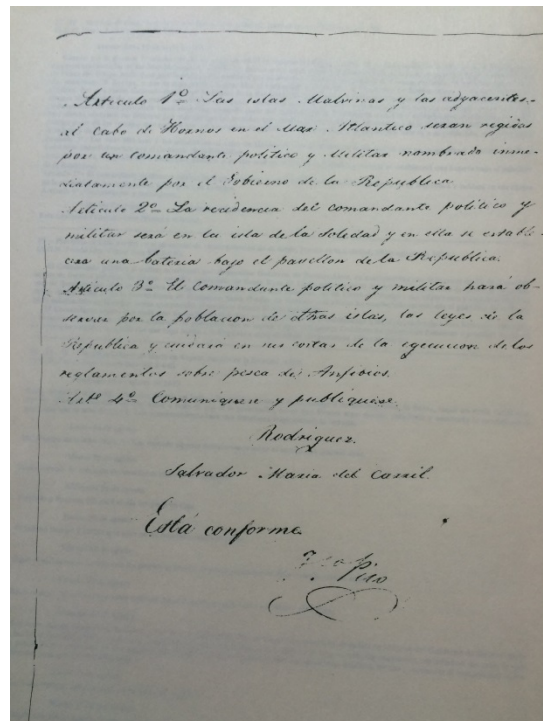 Articulo 1º Las islas Malvinas y las adyacentes
al Cabo de Hornos en el Mar Atlantico seran regidas
por un comandante politico y Militar nombrado inme-
diatamente por el Gobierno de la Republica.
Articulo 2º La residencia del comandante politico y
militar será en la isla de la Soledad y en ella se estable-
cera una bateria bajo el pavellon de la Republica.
Articulo 3º El comandante politico y militar hará ob-
servar por la poblacion de dchas islas, las leyes de la
Republica y cuidará en sus costas de la egecucion de los
reglamentos sobre pesca de Anfibios.
Artº 4º Comuniquese y publiquese.
Rodriguez.
Salvador Maria del Carril.
Está conforme.
Pico